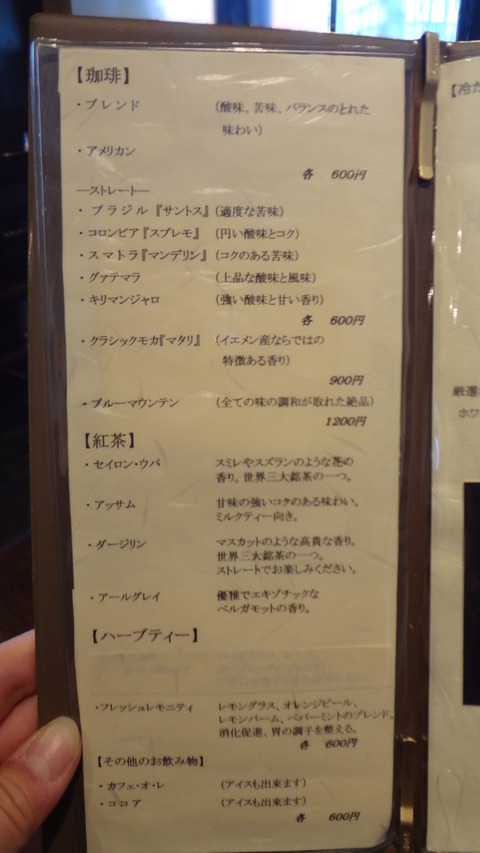 【珈琲】
・ブレンド （酸味、苦味、バランスのとれた
味わい）
・アメリカン
各 600円
―ストレート―
・ブラジル『サントス』（適度な苦味）
・コロンビア『スプレモ』（円い酸味とコク）
・スマトラ『マンデリン』（コクのある苦味）
・グァテマラ （上品な酸味と風味）
・キリマンジャロ （強い酸味と甘い香り）
各 600円
・クラシックモカ『マタリ』（イエメン産ならではの
特徴ある香り）
900円
・ブルーマウンテン （全ての味の調和が取れた絶品）
1200円
【紅茶】
・セイロン・ウバ スミレやスズランのような花の
香り。世界三大銘茶の一つ。
・アッサム 甘味の強いコクのある味わい。
ミルクティー向き。
・ダージリン マスカットのような高貴な香り。
世界三大銘茶の一つ。
ストレートでお楽しみください。
・アールグレイ 優雅でエキゾチックな
ベルガモットの香り。
【ハーブティー】
・フレッシュレモニティ レモングラス、オレンジピール、
レモンバーム、ペパーミントのブレンド。
消化促進、胃の調子を整える。
各 600円
【その他のお飲み物】
・カフェ・オ・レ （アイスも出来ます）
・ココア （アイスも出来ます）
各 600円
【冷た
厳選
ホワ